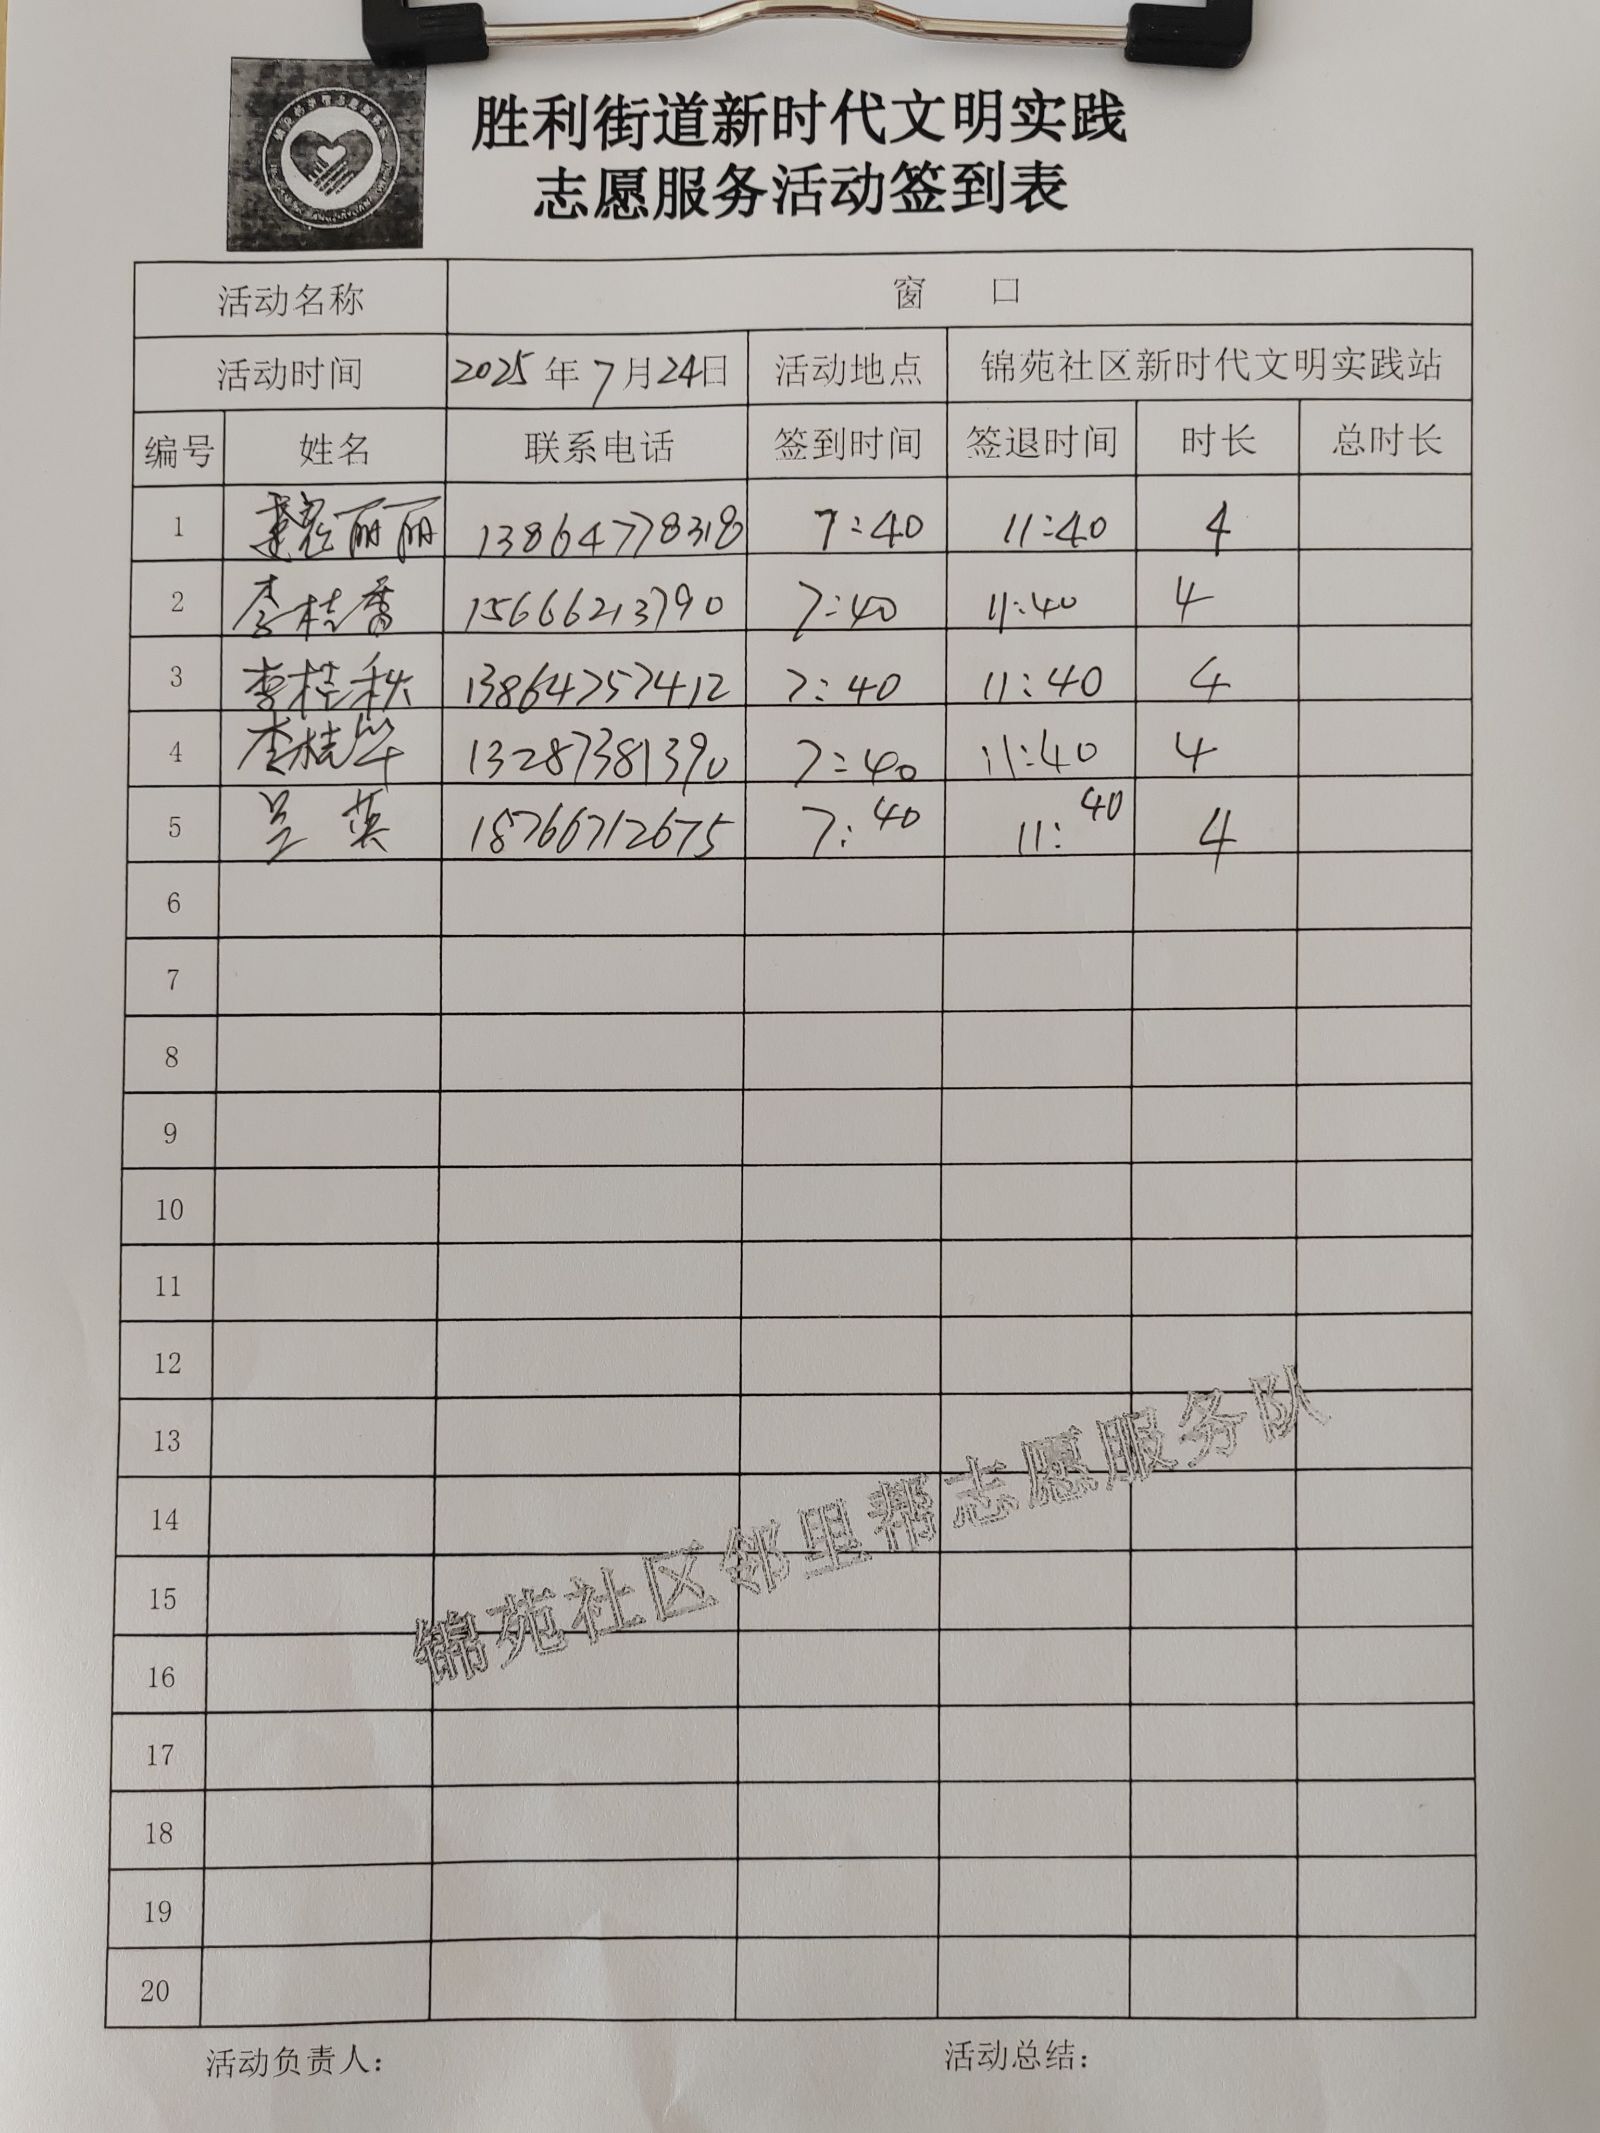 胜利街道新时代文明实践
志愿服务活动签到表
活动名称 窗 口
活动时间 2025年7月24日 活动地点 锦苑社区新时代文明实践站
编号 姓名 联系电话 签到时间 签退时间 时长 总时长
1 丽丽 13864778318 7:40 11:40 4
2 李桂香 15666213790 7:40 11:40 4
3 李桂秋 13864757412 7:40 11:40 4
4 李桂华 13287381390 7:40 11:40 4
5 吴英 18766712675 7:40 11:40 4
6
7
8
9
10
11
12
13
14
15
16
17
18
19
20
锦苑社区邻里帮志愿服务队
活动负责人： 活动总结：